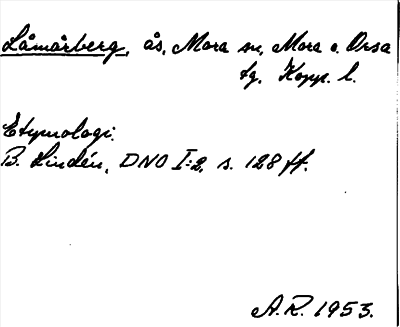 Låmårberg, ås, Mora sn, Mora o. Orsa
tg. Kopp. l.
Etymologi.
B. Lindén, DNO I:2, s. 128 ff.
A.R. 1953.